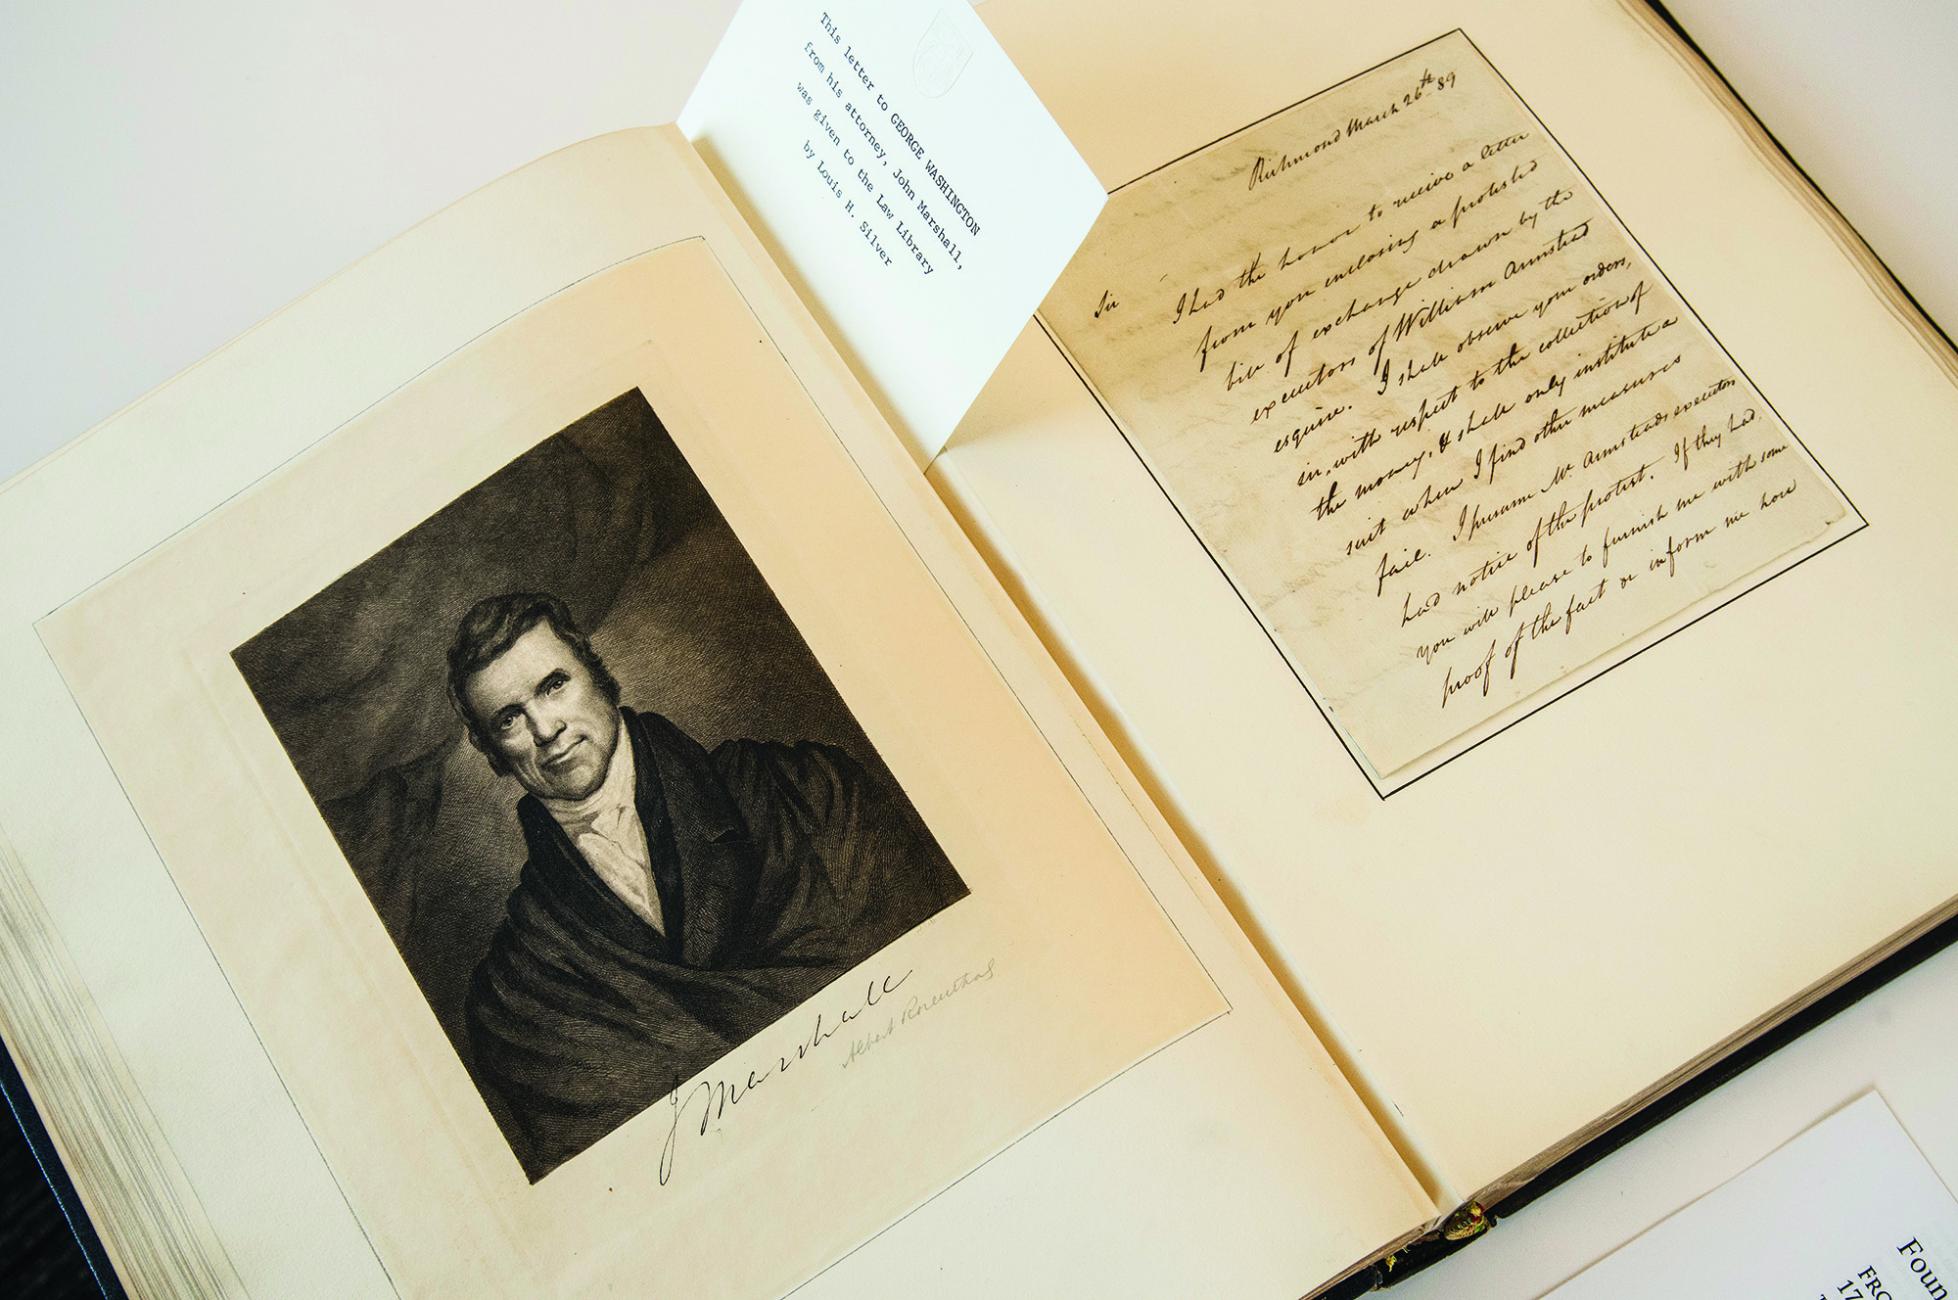 This letter to GEORGE WASHINGTON
from his attorney, John Marshall,
was given to the Law Library
by Louis H. Silver
J Marshall
Albert Rosenthal
Richmond March 26th 89
Sir
I had the honor to receive a letter
from you enclosing a protested
bill of exchange drawn by the
executors of William Armstead
esquire. I shall observe your orders,
sir, with respect to the collection of
the money, & shall only institute a
suit when I find other measures
fail. I presume Mr. Armsteads executors
had notice of the protest. If they had,
you will please to furnish me with some
proof of the fact or inform me how
Foun
FRO
17